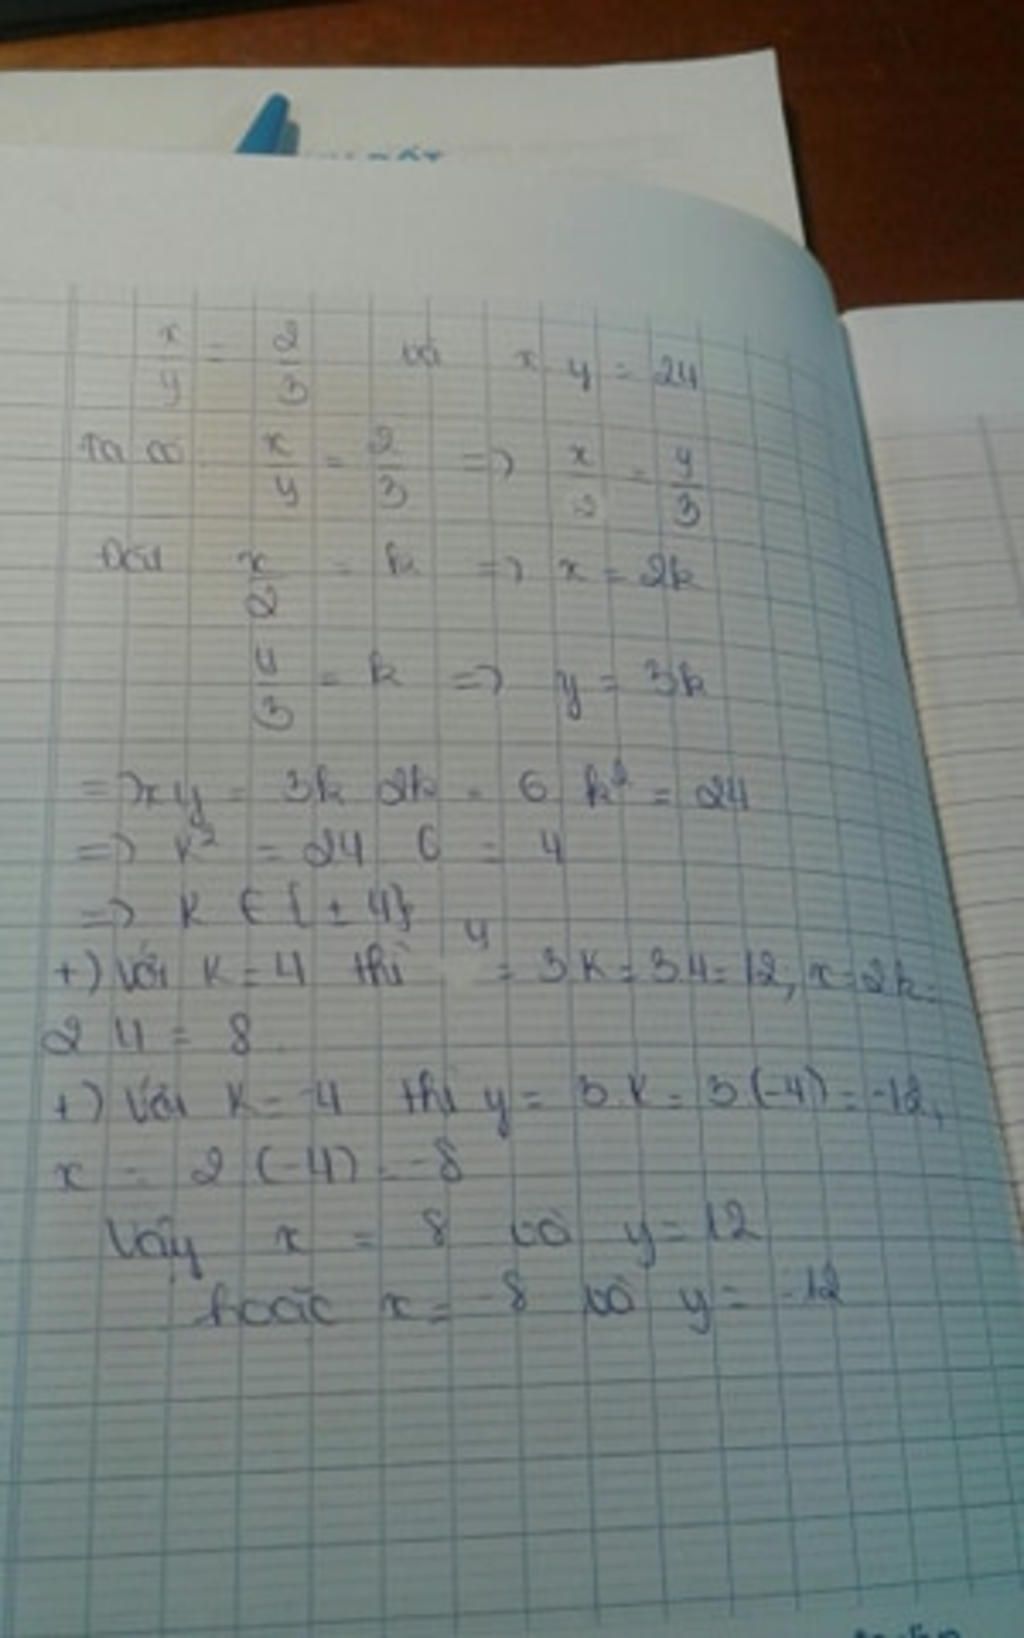 x/y = 2/3 và x y = 24
Ta có x/y = 2/3 => x/2 = y/3
Đặt x/2 = k => x = 2k
y/3 = k => y = 3k
=> xy = 3k 2k = 6 k² = 24
=> k² = 24 6 = 4
=> K ∈ {± 4}
+) Với K = 4 thì y = 3K = 3.4 = 12, x = 2k =
2 4 = 8
+) Với K = -4 thì y = 3.K = 3(-4) = -12,
x = 2 (-4) = -8
Vậy x = 8 và y = 12
hoặc x = -8 và y = -12